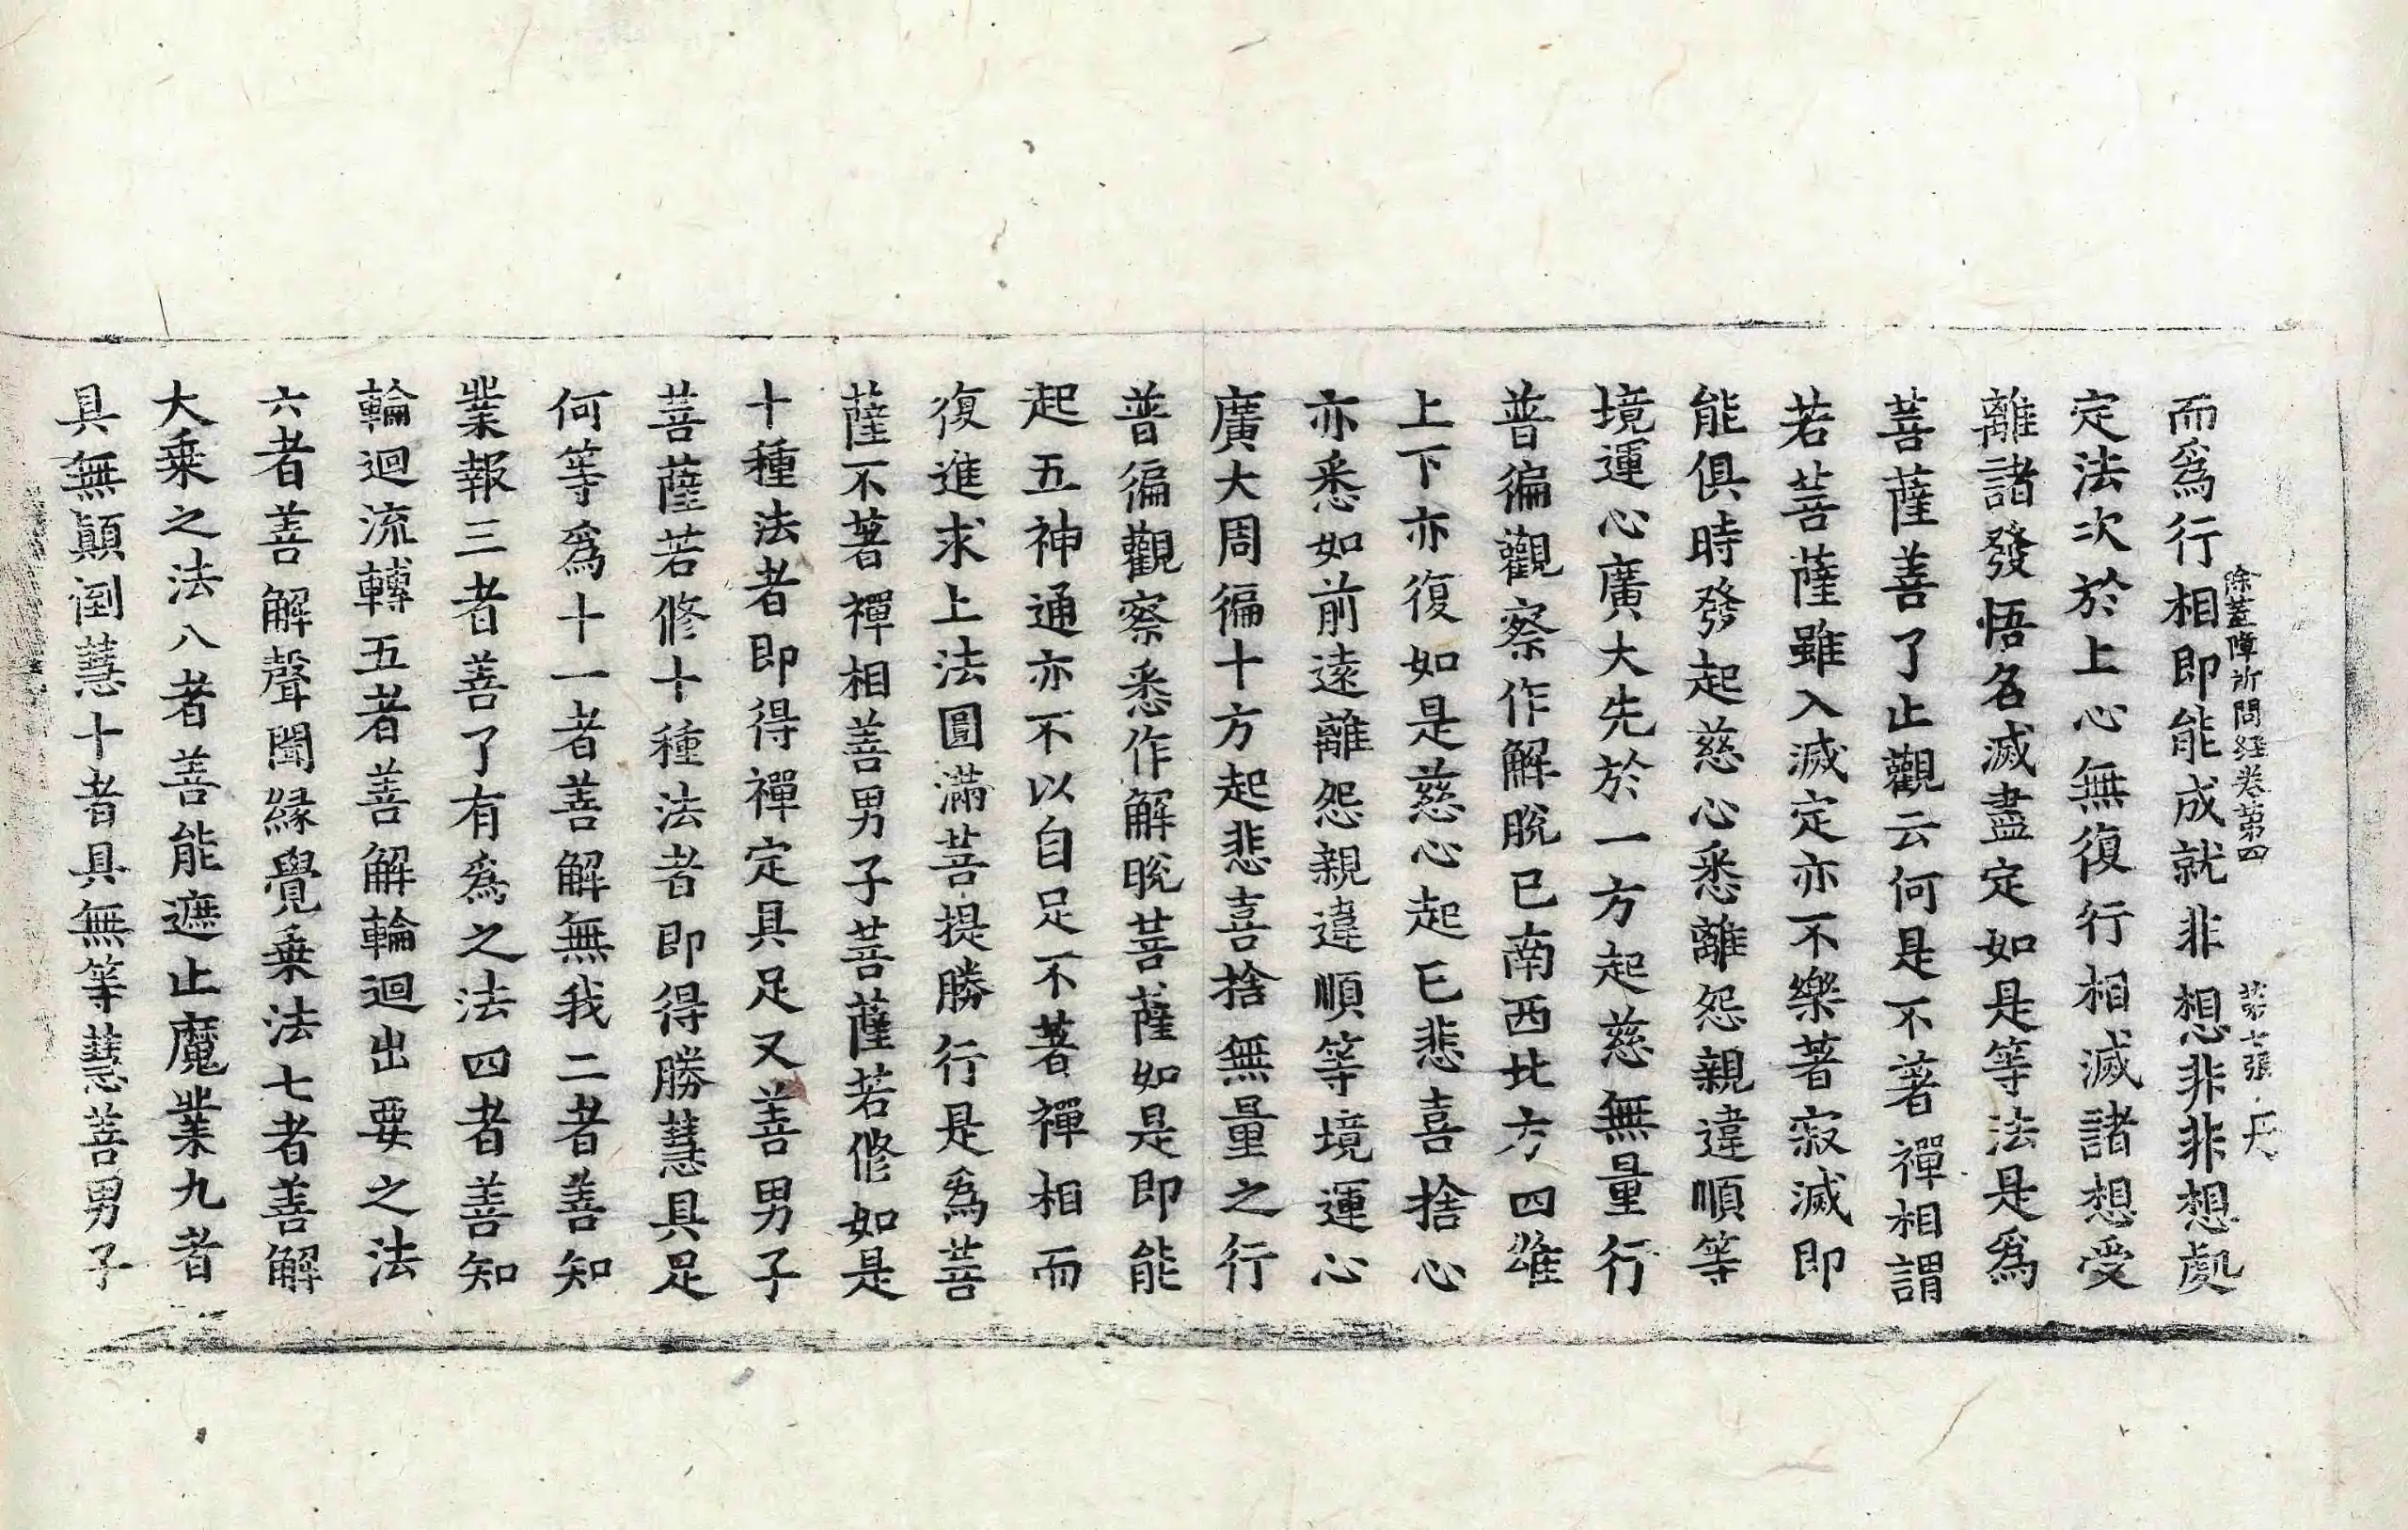 除蓋障所問経卷第四 第七張 丹
而爲行相即能成就非想非非想處
定法次於上心無復行相滅諸想受
離諸發悟名滅盡定如是等法是爲
菩薩善了止觀云何是不著禪相謂
若菩薩雖入滅定亦不樂著寂滅即
能俱時發起慈心悉離怨親違順等
境運心廣大先於一方起慈無量行
普徧觀察作解脫已南西北方四維
上下亦復如是慈心起已悲喜捨心
亦悉如前遠離怨親違順等境運心
廣大周徧十方起悲喜捨無量之行
普徧觀察悉作解脫菩薩如是即能
起五神通亦不以自足不著禪相而
復進求上法圓滿菩提勝行是爲菩
薩不著禪相善男子菩薩若修如是
十種法者即得禪定具足又善男子
菩薩若修十種法者即得勝慧具足
何等爲十一者善解無我二者善知
業報三者善了有爲之法四者善知
輪迴流轉五者善解輪迴出要之法
六者善解聲聞緣覺乗法七者善解
大乗之法八者善能遮止魔業九者
具無顛倒慧十者具無等慧善男子